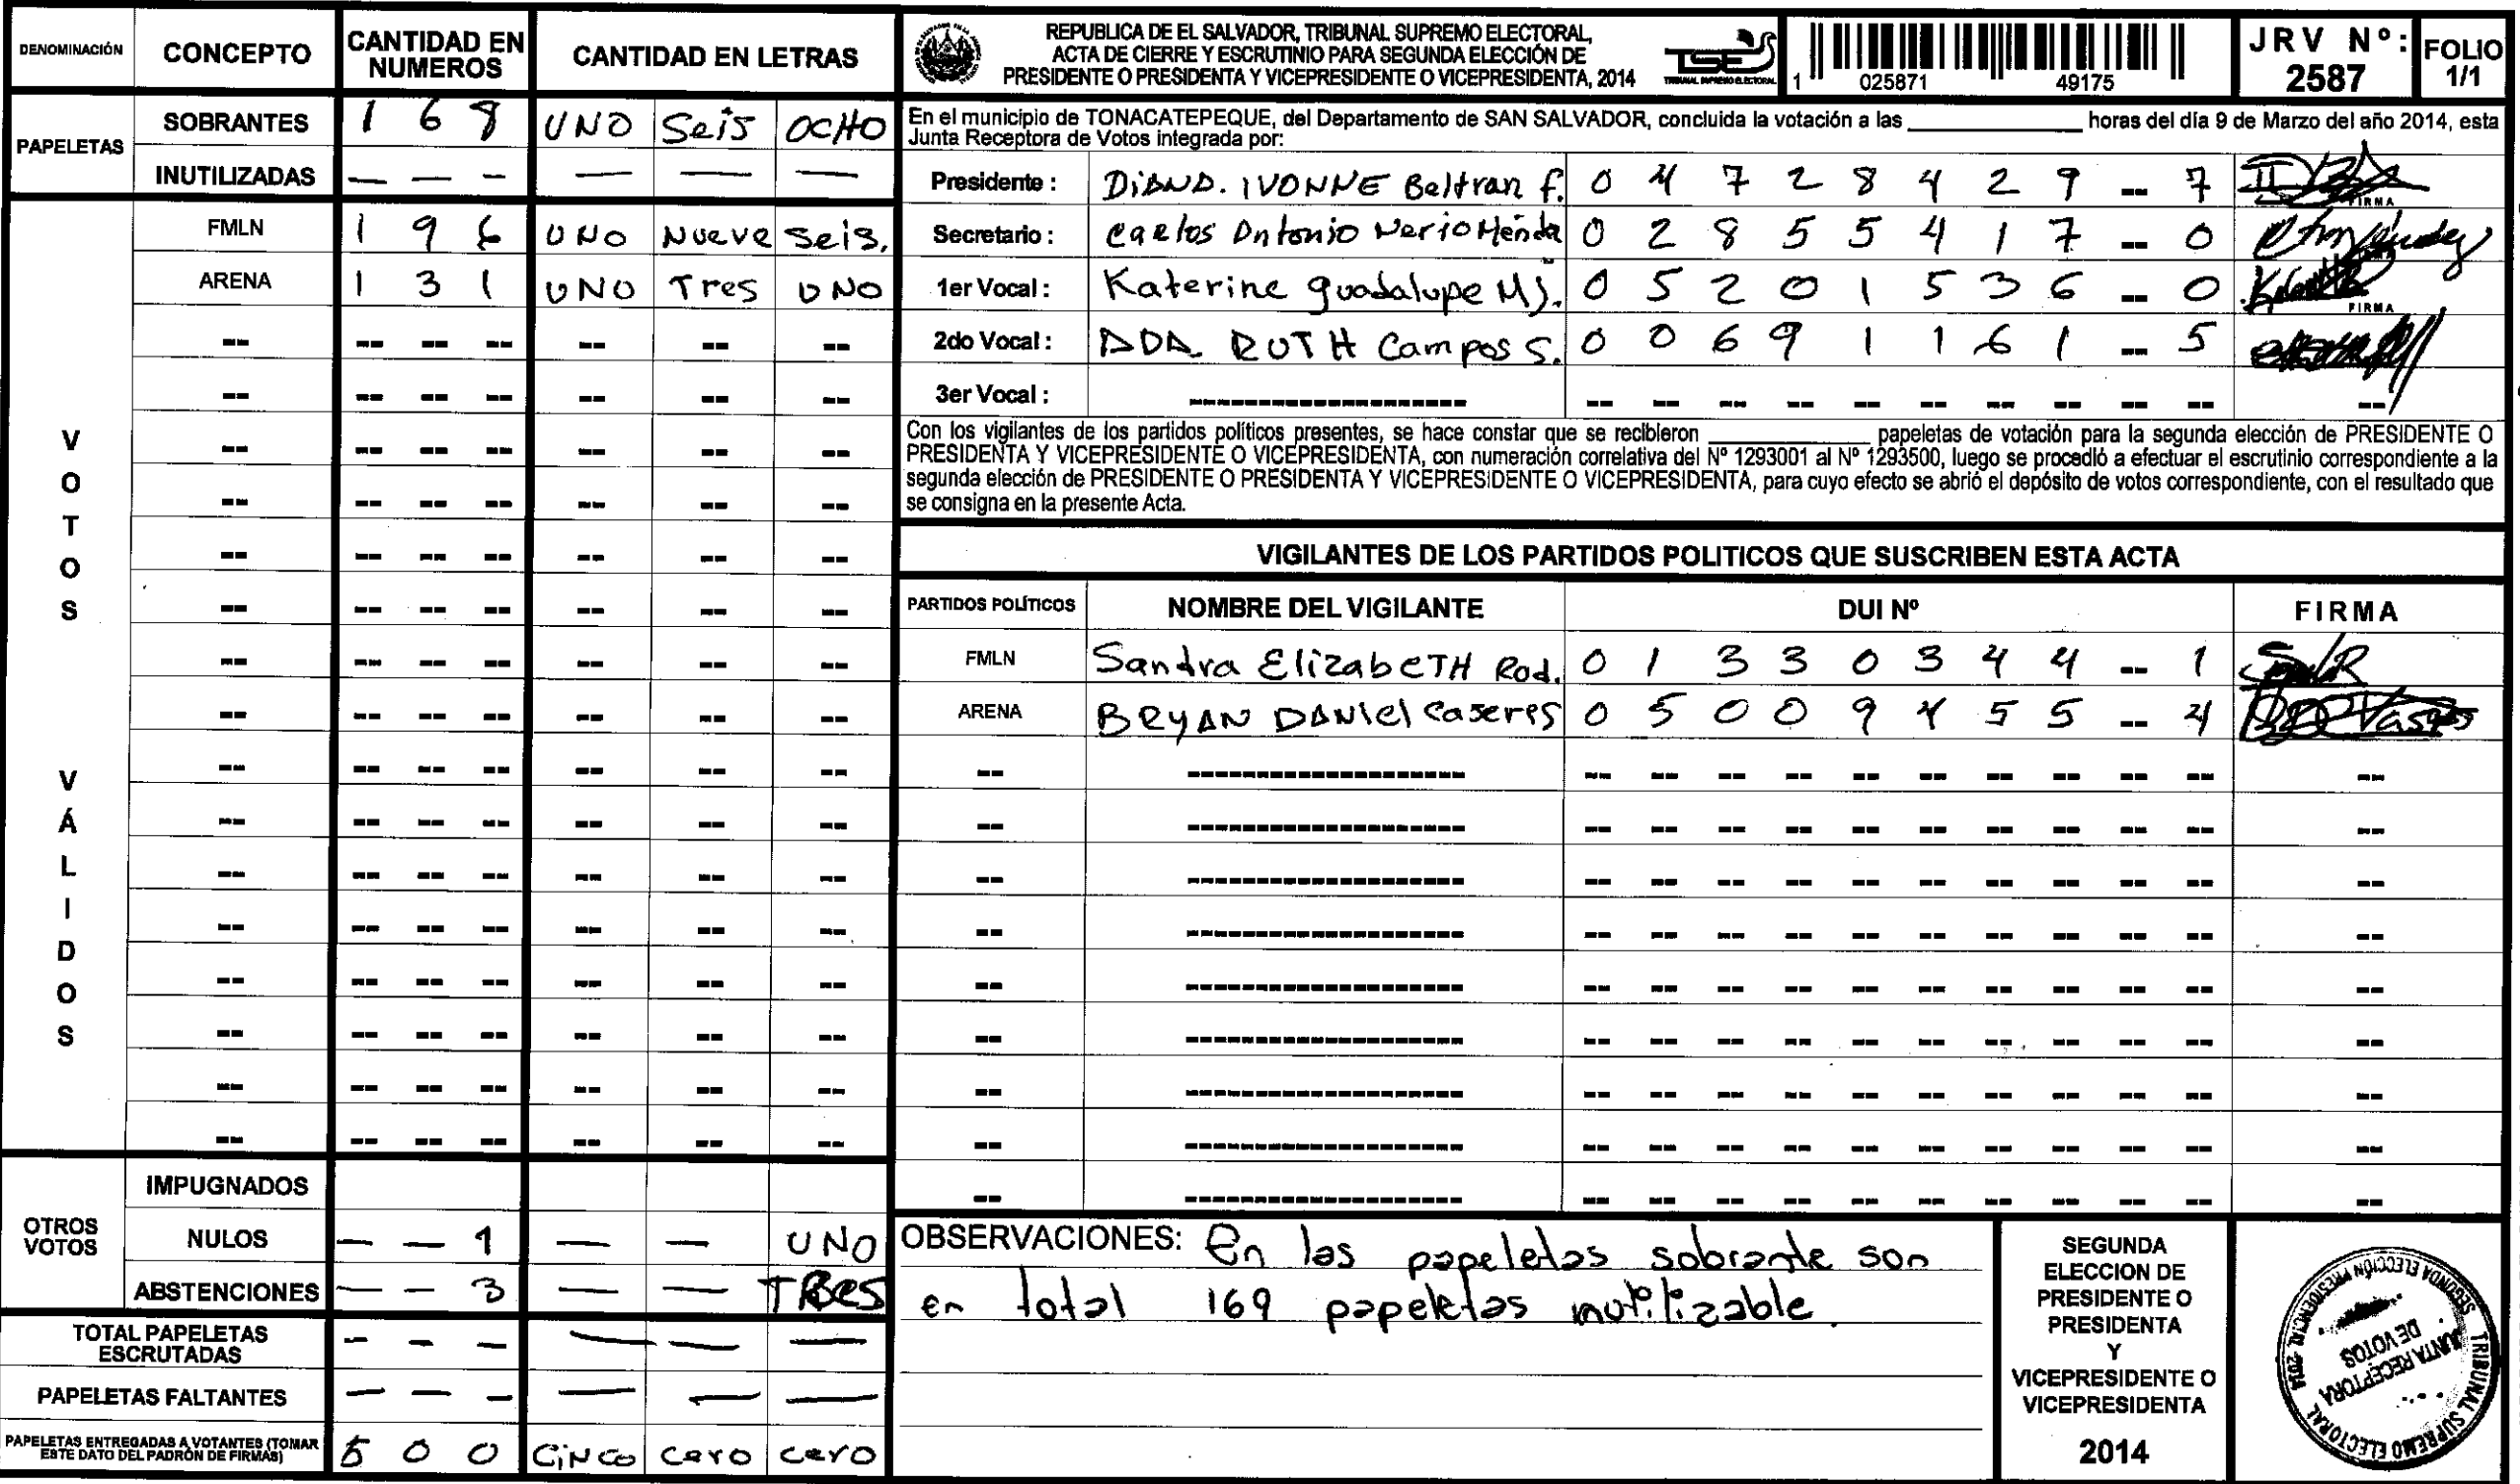 DENOMINACIÓN CONCEPTO CANTIDAD EN NUMEROS CANTIDAD EN LETRAS
PAPELETAS
SOBRANTES 1 6 8 UNO Seis OCHO
INUTILIZADAS — — — — — —
VOTOS VÁLIDOS
FMLN 1 9 6 UNO Nueve Seis.
ARENA 1 3 1 UNO Tres UNO
OTROS VOTOS
IMPUGNADOS
NULOS — — 1 — — UNO
ABSTENCIONES — — 3 — — TRES
TOTAL PAPELETAS ESCRUTADAS — — — — — —
PAPELETAS FALTANTES — — — — — —
PAPELETAS ENTREGADAS A VOTANTES (TOMAR ESTE DATO DEL PADRÓN DE FIRMAS) 5 0 0 CiNCo cero cero
REPUBLICA DE EL SALVADOR, TRIBUNAL SUPREMO ELECTORAL,
ACTA DE CIERRE Y ESCRUTINIO PARA SEGUNDA ELECCIÓN DE
PRESIDENTE O PRESIDENTA Y VICEPRESIDENTE O VICEPRESIDENTA, 2014
TSE
TRIBUNAL SUPREMO ELECTORAL
1 025871 49175
JRV Nº: 2587
FOLIO 1/1
En el municipio de TONACATEPEQUE, del Departamento de SAN SALVADOR, concluida la votación a las ____________ horas del día 9 de Marzo del año 2014, esta
Junta Receptora de Votos integrada por:
Presidente : DiANA. IVONNE Beltran f. 0 4 7 2 8 4 2 9 -- 7
FIRMA
Secretario : Carlos Antonio Nerio 0 2 8 5 5 4 1 7 -- 0
1er Vocal : Katerine guadalupe MJ. 0 5 2 0 1 5 3 6 -- 0
FIRMA
2do Vocal : ADA RUTH Campos S. 0 0 6 9 1 1 6 1 -- 5
3er Vocal :
Con los vigilantes de los partidos políticos presentes, se hace constar que se recibieron ____________ papeletas de votación para la segunda elección de PRESIDENTE O
PRESIDENTA Y VICEPRESIDENTE O VICEPRESIDENTA, con numeración correlativa del Nº 1293001 al Nº 1293500, luego se procedió a efectuar el escrutinio correspondiente a la
segunda elección de PRESIDENTE O PRESIDENTA Y VICEPRESIDENTE O VICEPRESIDENTA, para cuyo efecto se abrió el depósito de votos correspondiente, con el resultado que
se consigna en la presente Acta.
VIGILANTES DE LOS PARTIDOS POLITICOS QUE SUSCRIBEN ESTA ACTA
PARTIDOS POLÍTICOS NOMBRE DEL VIGILANTE DUI Nº FIRMA
FMLN Sandra ElizabeTH Rod. 0 1 3 3 0 3 4 4 -- 1
ARENA BRYAN DANiel Caseres 0 5 0 0 9 4 5 5 -- 4
OBSERVACIONES: En las papeletas sobrante son
en total 169 papeletas inutilizable.
SEGUNDA
ELECCION DE
PRESIDENTE O
PRESIDENTA
Y
VICEPRESIDENTE O
VICEPRESIDENTA
2014
TRIBUNAL SUPREMO ELECTORAL
SEGUNDA ELECCIÓN PRESIDENCIAL 2014
JUNTA RECEPTORA
DE VOTOS